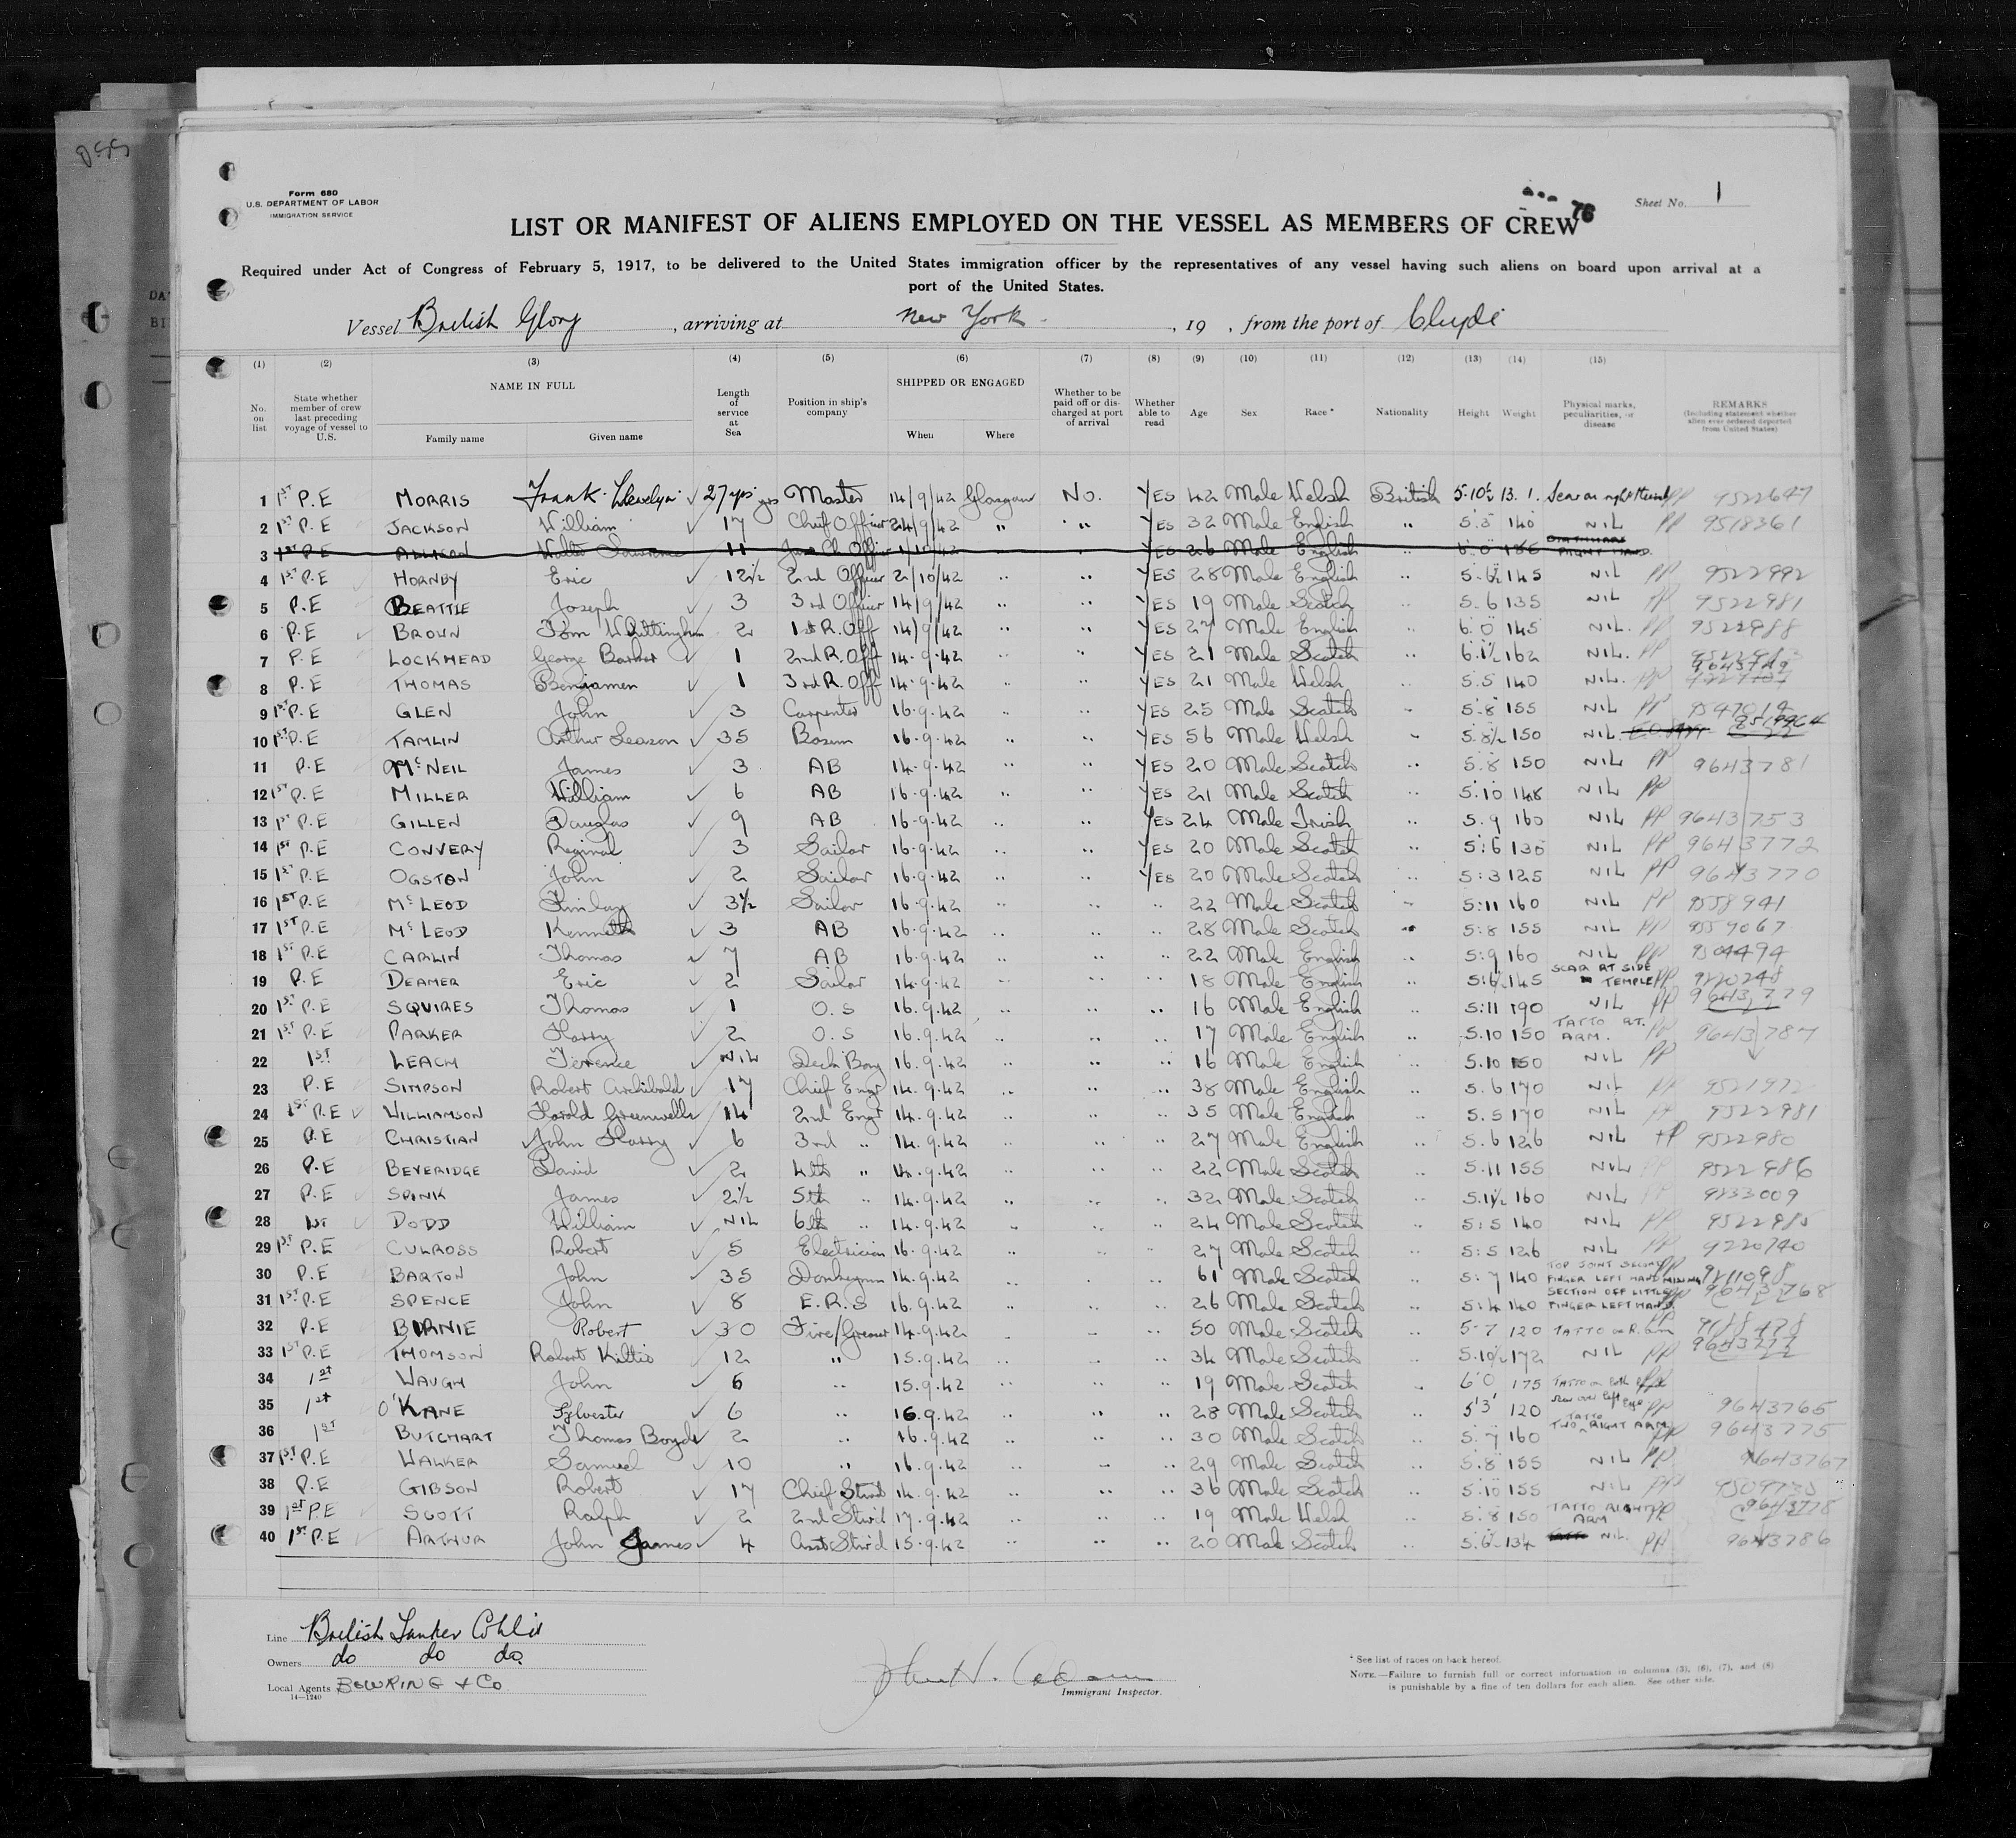 Form 680
U.S. DEPARTMENT OF LABOR
IMMIGRATION SERVICE
Sheet No. 1
76
LIST OR MANIFEST OF ALIENS EMPLOYED ON THE VESSEL AS MEMBERS OF CREW
Required under Act of Congress of February 5, 1917, to be delivered to the United States immigration officer by the representatives of any vessel having such aliens on board upon arrival at a
port of the United States.
Vessel British Glory, arriving at New York, 19 , from the port of Clyde
(1) (2) (3) (4) (5) (6) (7) (8) (9) (10) (11) (12) (13) (14) (15)
No. on list State whether member of crew last preceding voyage of vessel to U.S. NAME IN FULL Family name Given name Length of service at Sea Position in ship's company SHIPPED OR ENGAGED When Where Whether to be paid off or discharged at port of arrival Whether able to read Age Sex Race* Nationality Height Weight Physical marks, peculiarities, or disease REMARKS (Including statement whether alien ever ordered deported from United States)
1 1ST P.E MORRIS Frank Llewelyn 27 yrs Master 14/9/42 Glasgow No. YES 42 Male Welsh British 5.10½ 13.1. Scar on right thumb PP 9522647
2 1ST P.E JACKSON William 17 Chief Officer 24/9/42 " " YES 32 Male English " 5.5 140 NIL PP 9518361
3 1ST P.E Walter Lawrence 11 Ch Officer YES 26 Male English 6.0 186 RIGHT HAND
4 1ST P.E HORNBY Eric 12½ 2nd Officer 2/10/42 " " YES 28 Male English " 5.6½ 145 NIL PP 9522992
5 P.E BEATTIE Joseph 3 3rd Officer 14/9/42 " " YES 19 Male Scotch " 5.6 135 NIL PP 9522981
6 P.E BROWN Tom Whittingham 2 1st R. Off 14/9/42 " " YES 27 Male English " 6.0 145 NIL. PP 9522988
7 P.E LOCKHEAD George Barker 1 2nd R. Off 14.9.42 " " YES 21 Male Scotch " 6.1½ 162 NIL. PP
8 P.E THOMAS Benjamen 1 3rd R. Off 14.9.42 " " YES 21 Male Welsh " 5.5 140 NIL. PP 9643749
9 1ST P.E GLEN John 3 Carpenter 16.9.42 " " YES 25 Male Scotch " 5.8 155 NIL PP 9547014
10 1ST P.E TAMLIN Arthur Leason 35 Bosun 16.9.42 " " YES 56 Male Welsh " 5.8½ 150 NIL.
11 P.E McNEIL James 3 AB 14.9.42 " " YES 20 Male Scotch " 5.8 150 NIL PP 9643781
12 1ST P.E MILLER William 6 AB 16.9.42 " " YES 21 Male Scotch " 5.10 148 NIL PP
13 1ST P.E GILLEN Douglas 9 AB 16.9.42 " " YES 24 Male Irish " 5.9 160 NIL PP 9643753
14 1ST P.E CONVERY Reginal 3 Sailor 16.9.42 " " YES 20 Male Scotch " 5.6 130 NIL PP 9643772
15 1ST P.E OGSTON John 2 Sailor 16.9.42 " " YES 20 Male Scotch " 5.3 125 NIL PP 9643770
16 1ST P.E McLEOD Finlay 3½ Sailor 16.9.42 " " " 22 Male Scotch " 5.11 160 NIL PP 9558941
17 1ST P.E McLEOD Kenneth 3 AB 16.9.42 " " " 28 Male Scotch " 5.8 155 NIL PP 9557067
18 1ST P.E CARLIN Thomas 7 AB 16.9.42 " " " 22 Male English " 5.9 160 NIL PP 9504494
19 P.E DEAMER Eric 2 Sailor 14.9.42 " " " 18 Male English " 5.6½ 145 SCAR RT SIDE TEMPLE PP 9220248
20 1ST P.E SQUIRES Thomas 1 O.S 16.9.42 " " " 16 Male English " 5.11 190 NIL PP 9643779
21 1ST P.E PARKER Harry 2 O.S 16.9.42 " " " 17 Male English " 5.10 150 TATTO RT. ARM. PP 9643787
22 1ST LEACH Terence NIL Deck Boy 16.9.42 " " " 16 Male English " 5.10 150 NIL PP
23 P.E SIMPSON Robert Archibald 17 Chief Engr 14.9.42 " " " 38 Male English " 5.6 170 NIL PP 9521972
24 1ST P.E WILLIAMSON Harold Greenwells 14 2nd Engr 14.9.42 " " " 35 Male English " 5.5 170 NIL PP 9522981
25 P.E CHRISTIAN John Harry 6 3rd " 14.9.42 " " " 27 Male English " 5.6 126 NIL PP 9522980
26 P.E BEVERIDGE David 2 4th " 14.9.42 " " " 22 Male Scotch " 5.11 155 NIL PP 9522986
27 P.E SPINK James 2½ 5th " 14.9.42 " " " 32 Male Scotch " 5.11½ 160 NIL PP 9833009
28 1ST DODD William NIL 6th " 14.9.42 " " " 24 Male Scotch " 5.5 140 NIL PP 9522985
29 1ST P.E CULROSS Robert 5 Electrician 16.9.42 " " " 27 Male Scotch " 5.5 126 NIL PP 9220740
30 P.E BARTON John 35 Donkeyman 14.9.42 " " " 61 Male Scotch " 5.7 140 TOP JOINT SECOND FINGER LEFT HAND MISSING PP 9811098
31 1ST P.E SPENCE John 8 E.R.S 16.9.42 " " " 26 Male Scotch " 5.4 140 SECTION OFF LITTLE FINGER LEFT HAND. PP 9643768
32 P.E BIRNIE Robert 30 Fire/Greaser 14.9.42 " " " 50 Male Scotch " 5.7 120 TATTO on R. arm PP
33 1ST P.E THOMSON Robert Kiltie 12 " 15.9.42 " " " 34 Male Scotch " 5.10½ 172 NIL PP 9643777
34 1st WAUGH John 6 " 15.9.42 " " " 19 Male Scotch " 6'0 175 TATTO on both PP
35 1st O'KANE Sylvester 6 " 16.9.42 " " " 28 Male Scotch " 5'3' 120 Scar over left Eye PP 9643765
36 1st BUTCHART Thomas Boyd 2 " 16.9.42 " " " 30 Male Scotch " 5.7 160 TWO TATTO RIGHT ARM PP 9643775
37 1ST P.E WALKER Samuel 10 " 16.9.42 " " " 29 Male Scotch " 5.8 155 NIL PP 9643767
38 P.E GIBSON Robert 17 Chief Stwd 14.9.42 " " " 36 Male Scotch " 5.10 155 NIL PP
39 1st P.E SCOTT Ralph 2 2nd Stwd 17.9.42 " " " 19 Male Welsh " 5.8 150 TATTO RIGHT ARM PP 9643778
40 1ST P.E ARTHUR John James 4 Asst Stwd 15.9.42 " " " 20 Male Scotch " 5.6 134 NIL. PP 9643786
Line British Tanker Co Ltd
Owners do do do.
Local Agents BOWRING & Co
14—1240
Immigrant Inspector.
* See list of races on back hereof.
NOTE.—Failure to furnish full or correct information in columns (3), (6), (7), and (8)
is punishable by a fine of ten dollars for each alien. See other side.